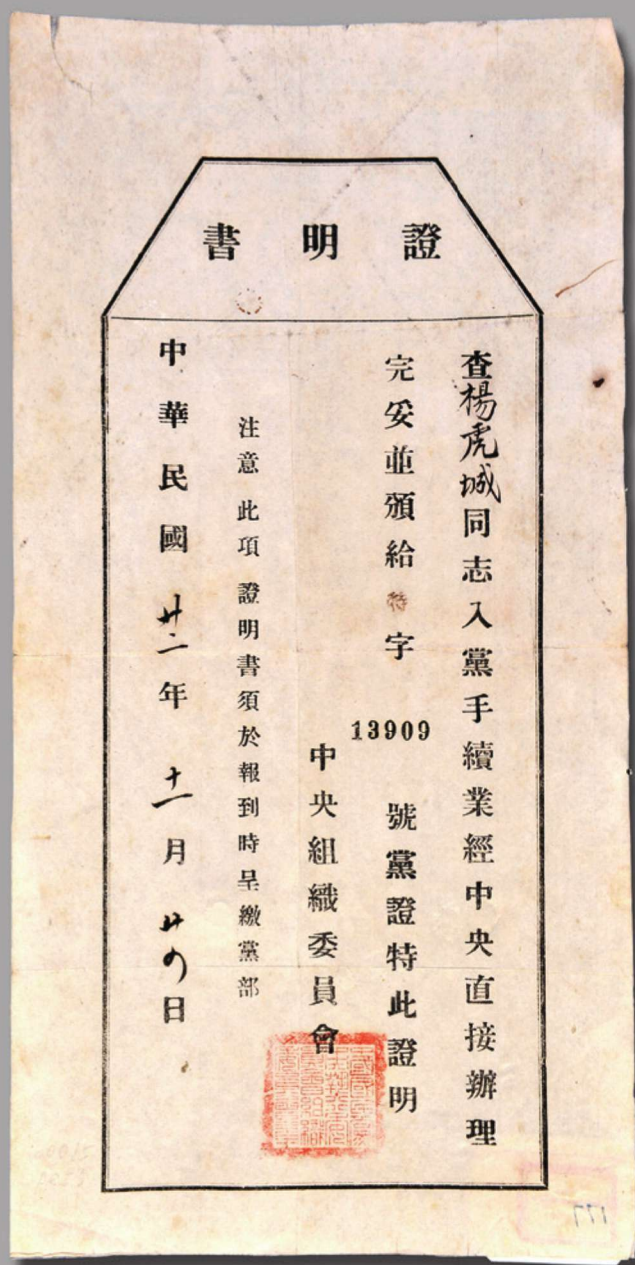 證明書
查楊虎城同志入黨手續業經中央直接辦理
完妥並頒給特字13909號黨證特此證明
中央組織委員會
注意 此項證明書須於報到時呈繳黨部
中華民國廿二年十一月廿四日
177